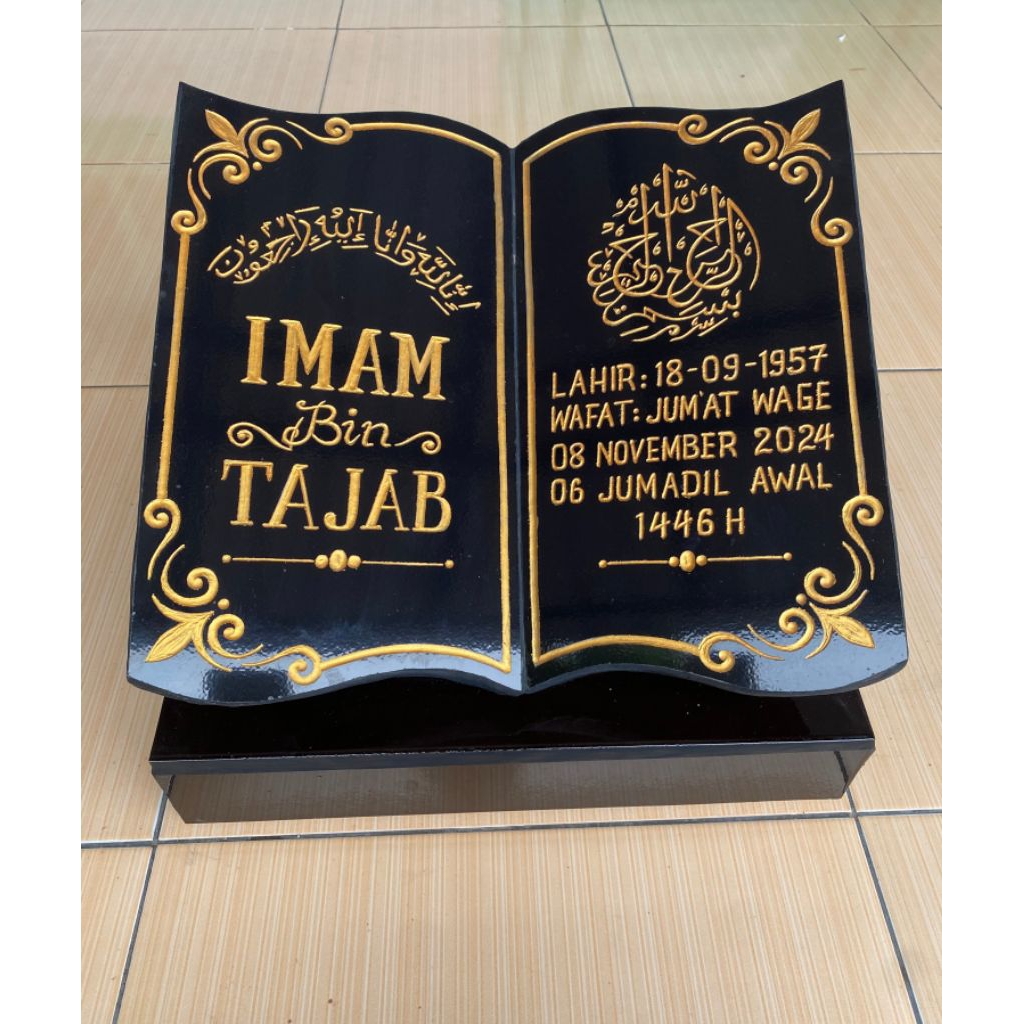 إنا لله وإنا إليه راجعون
IMAM
Bin
TAJAB
بسم الله الرحمن الرحيم
LAHIR: 18-09-1957
WAFAT: JUM'AT WAGE
08 NOVEMBER 2024
06 JUMADIL AWAL
1446 H